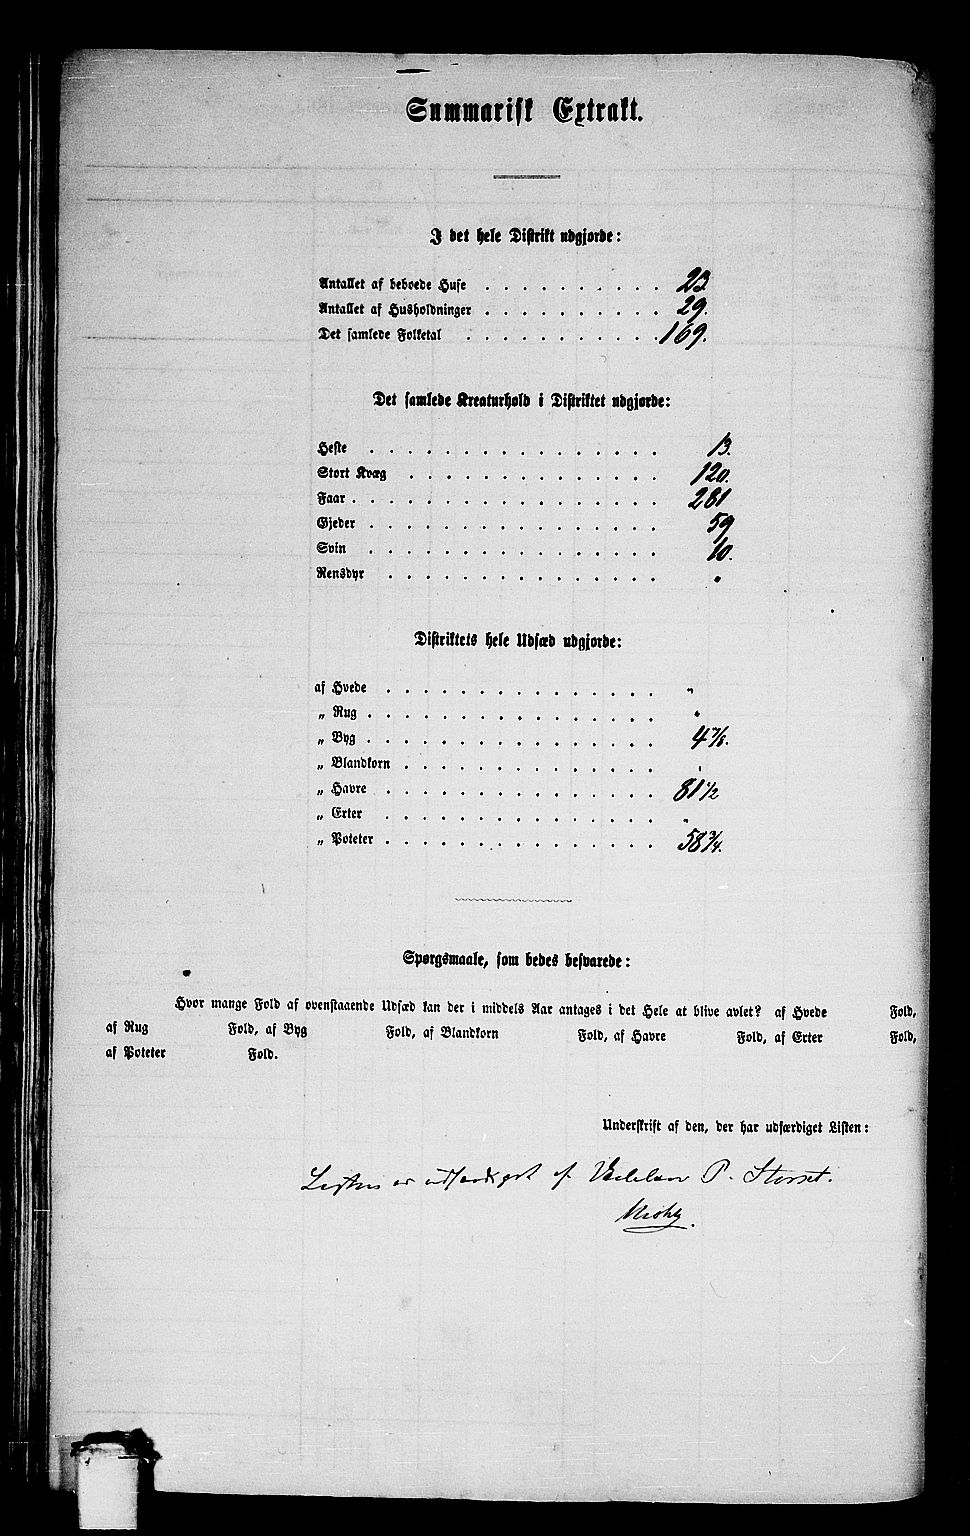 Summarisk Extrakt.
I det hele Distrikt udgjorde:
Antallet af beboede Huse . . . . . . . . . . 23.
Antallet af Husholdninger . . . . . . . . . . 29.
Det samlede Folketal . . . . . . . . . . . 169.
Det samlede Kreaturhold i Distriktet udgjorde:
Heste . . . . . . . . . . . . . . . . 13.
Stort Kvæg . . . . . . . . . . . . . . 120.
Faar . . . . . . . . . . . . . . . . . 281
Gjeder . . . . . . . . . . . . . . . . 59
Svin . . . . . . . . . . . . . . . . 10.
Rensdyr . . . . . . . . . . . . . . . "
Distriktets hele Udsæd udgjorde:
af Hvede . . . . . . . . . . . . . . . "
„ Rug . . . . . . . . . . . . . . . . "
„ Byg . . . . . . . . . . . . . . . . 4 7/8.
„ Blandkorn . . . . . . . . . . . . . . "
„ Havre . . . . . . . . . . . . . . . 81 1/2
„ Erter . . . . . . . . . . . . . . . "
„ Poteter . . . . . . . . . . . . . . . 58 3/4.
Spørgsmaale, som bedes besvarede:
Hvor mange Fold af ovenstaaende Udsæd kan der i middels Aar antages i det Hele at blive avlet? af Hvede Fold,
af Rug Fold, af Byg Fold, af Blandkorn Fold, af Havre Fold, af Erter Fold,
af Poteter Fold.
Underskrift af den, der har udfærdiget Listen:
Listen er udfærdiget af P. Storset.